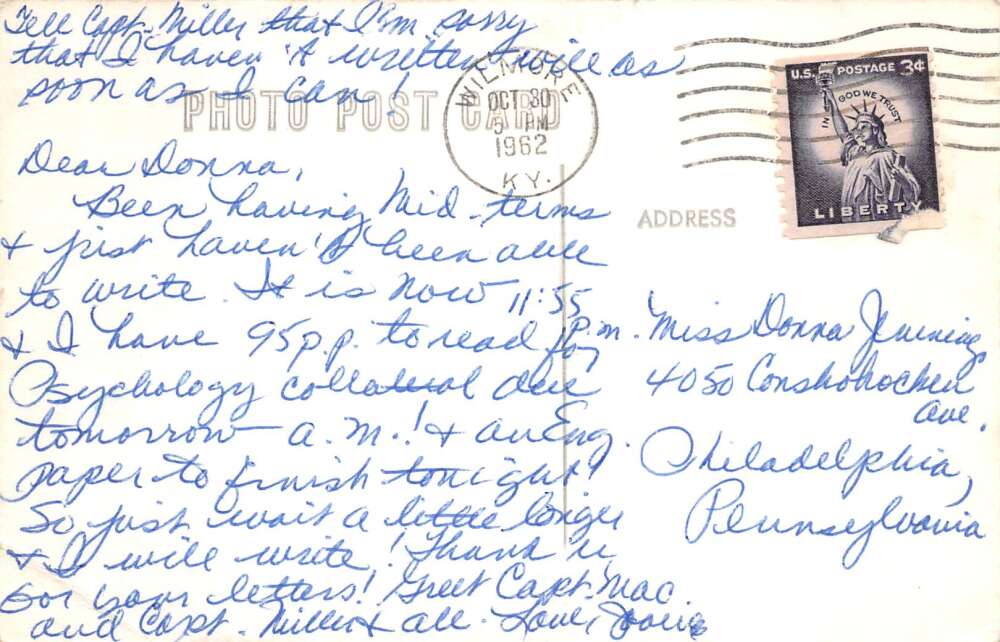 Tell Capt. Miller that I'm sorry
that I haven't written will as
soon as I can!
PHOTO POST CARD
WILMORE
OCT 30
5 AM
1962
KY.
U.S. POSTAGE 3¢
IN GOD WE TRUST
LIBERTY
ADDRESS
Dear Donna,
Been having Mid-terms
& just haven't been able
to write. It is now 11:55 p.m.
& I have 95 p.p. to read for
Psychology collateral due
tomorrow a.m.! & an Eng.
paper to finish tonight!
So just wait a little longer
& I will write! Thank u
for your letters! Greet Capt. Mac
and Capt. Miller & all. Love,
Miss Donna Jenning
4050 Conshohocken
Ave.
Philadelphia,
Pennsylvania